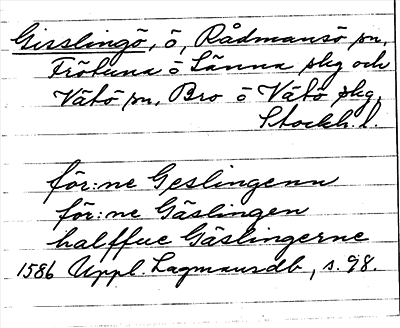 Gisslingö, ö, Rådmansö sn,
Frötuna o Länna skg och
Vätö sn, Bro o Vätö skg,
Stockh. l.
för:ne Geslingenn
för:ne Gäslingen
halffue Gäslingerne
1586 Uppl. Lagmansdb, s. 98.